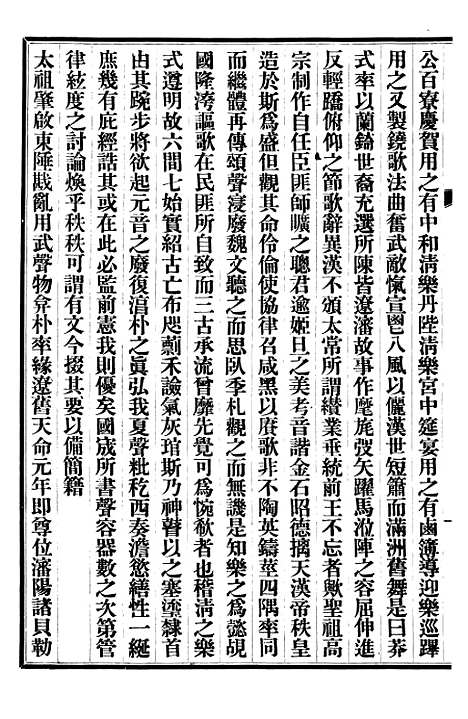 公百寮慶賀用之有中和清樂丹陛清樂宮中筵宴用之有鹵簿導迎樂巡蹕
用之又製鐃歌法曲奮武敵愾宣鬯八風以儷漢世短簫而滿洲舊舞是曰莽
式率以蘭錡世裔充選所陳皆遼瀋故事作麾旄弢矢躍馬涖陣之容屈伸進
反輕蹻俯仰之節歌辭異漢不頒太常所謂纘業垂統前王不忘者歟聖祖高
宗制作自任臣匪師曠之聰君逾姬旦之美考音諧金石昭德摛天漢帝秩皇
造於斯爲盛但觀其命伶倫使協律召咸黑以賡歌非不陶英鑄莖四隅率同
而繼體再傳頌聲寖廢魏文聽之而思臥季札觀之而無譏是知樂之爲懿覘
國隆洿謳歌在民匪所自致而三古承流曾靡先覺可爲惋欷者也稽清之樂
式遵明故六閒七始實紹古亡布咫藾禾譣氣灰琯斯乃神瞽以之塞塗隸首
由其踠步將欲起元音之廢復涫朴之眞弘我夏聲粃秕西奏澹慾繕性一綖
庶幾有庇經誥其或在此必監前憲我則優矣國宬所書聲容器數之次第管
律絃度之討論煥乎秩秩可謂有文今掇其要以備簡籍
太祖肇啟東陲戡亂用武聲物弇朴率緣遼舊天命元年卽尊位瀋陽諸貝勒